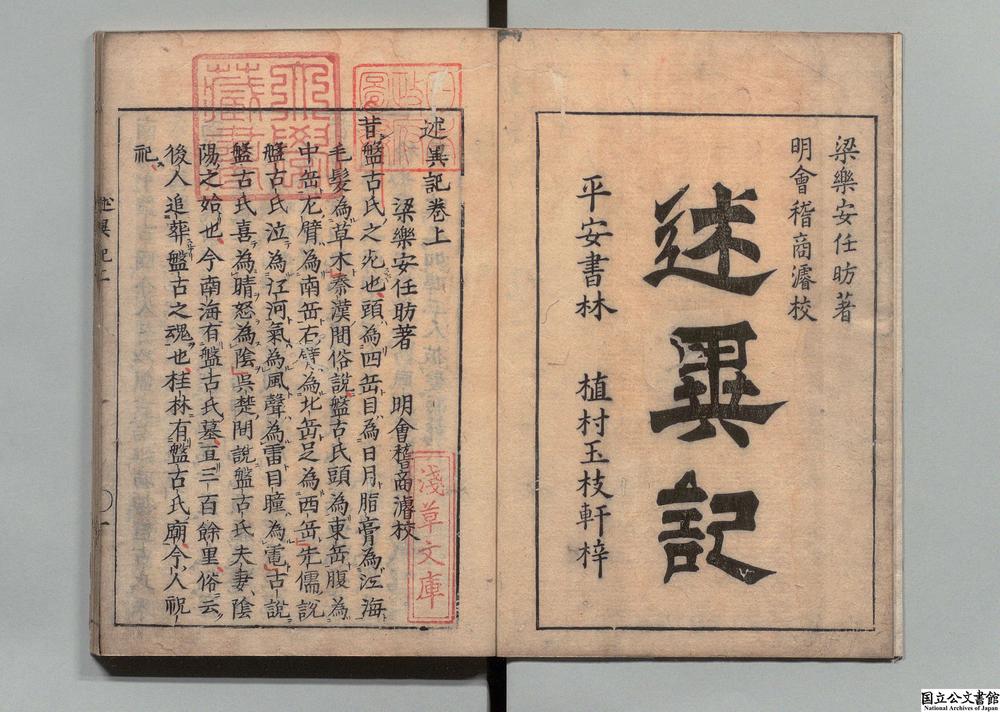 梁樂安任昉著
明會稽商濬校
述異記
平安書林 植村玉枝軒梓
述異記卷上
梁樂安任昉著 明會稽商濬校
昔盤古氏之死也頭為四岳目為日月脂膏為江海
毛髮為草木秦漢間俗說盤古氏頭為東岳腹為
中岳左臂為南岳右臂為北岳足為西岳先儒說
盤古氏泣為江河氣為風聲為雷目瞳為電古說
盤古氏喜為晴怒為陰吳楚間說盤古氏夫妻陰
陽之始也今南海有盤古氏墓亘三百餘里俗云
後人追葬盤古之魂也桂林有盤古氏廟今人祝
祀
述異記上
〇一
淺草文庫
国立公文書館
National Archives of Japan